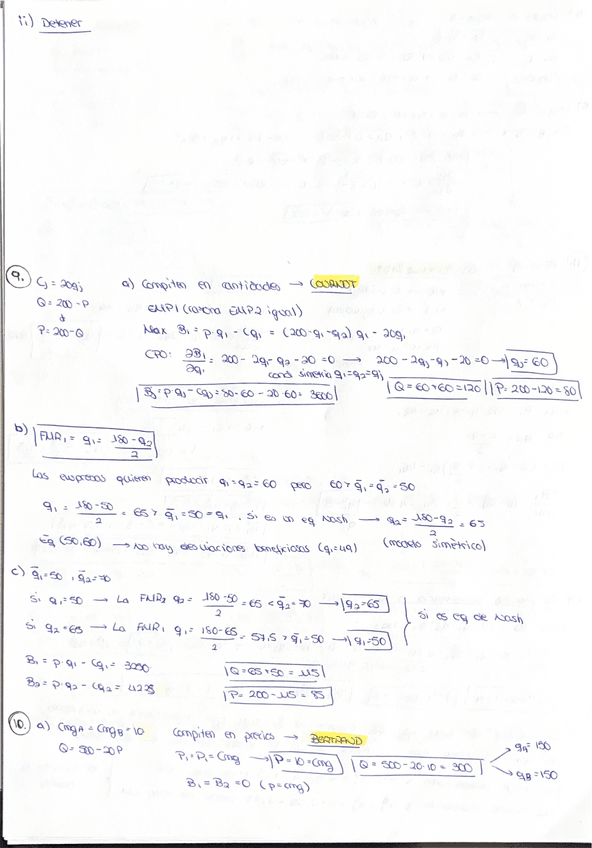 ii) Detener
9. Cj = 20qj
a) Compiten en cantidades → COURNOT
Q = 200 - P
EMP1 (razona EMP2 igual)
P = 200 - Q
Max B1 = P·q1 - Cq1 = (200 - q1 - q2) q1 - 20q1
CPO: ∂B1/∂q1 = 200 - 2q1 - q2 - 20 = 0 → 200 - 2qj - qj - 20 = 0 → qj = 60
cond simetria q1 = q2 = qj
Bj = P·qj - Cqj = 80·60 - 20·60 = 3600 Q = 60 + 60 = 120 P = 200 - 120 = 80
b) FMR1 = q1 = (180 - q2)/2
Las empresas quieren producir q1 = q2 = 60 pero 60 > q̄1 = q̄2 = 50
q1 = (180 - 50)/2 = 65 > q̄1 = 50 = q1, si es un eq Nash → q2 = (180 - q2)/2 = 65
Eq (50,60) → No hay desviaciones beneficiosas (modelo simétrico)
c) q̄1 = 50, q̄2 = 70
Si q1 = 50 → La FMR2 q2 = (180 - 50)/2 = 65 < q̄2 = 70 → q2 = 65
Si q2 = 65 → La FMR1 q1 = (180 - 65)/2 = 57,5 > q̄1 = 50 → q1 = 50
Si es eq de Nash
B1 = P·q1 - Cq1 = 3250 Q = 65 + 50 = 115
B2 = P·q2 - Cq2 = 4225 P = 200 - 115 = 85
10. a) CmgA = CmgB = 10 Compiten en precios → BERTRAND
Q = 500 - 20P
P1 = P2 = Cmg → P = 10 = Cmg Q = 500 - 20·10 = 300
qA = 150
qB = 150
B1 = B2 = 0 (P = cmg)